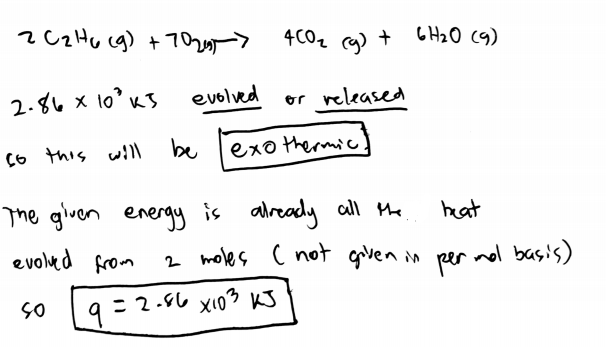 2 C2H6 (g) + 7O2(g) → 4CO2 (g) + 6H2O (g)
2.86 × 10³ KJ evolved or released
so this will be exothermic.
The given energy is already all the heat
evolved from 2 moles (not given in per mol basis)
so q = 2.86 ×10³ KJ